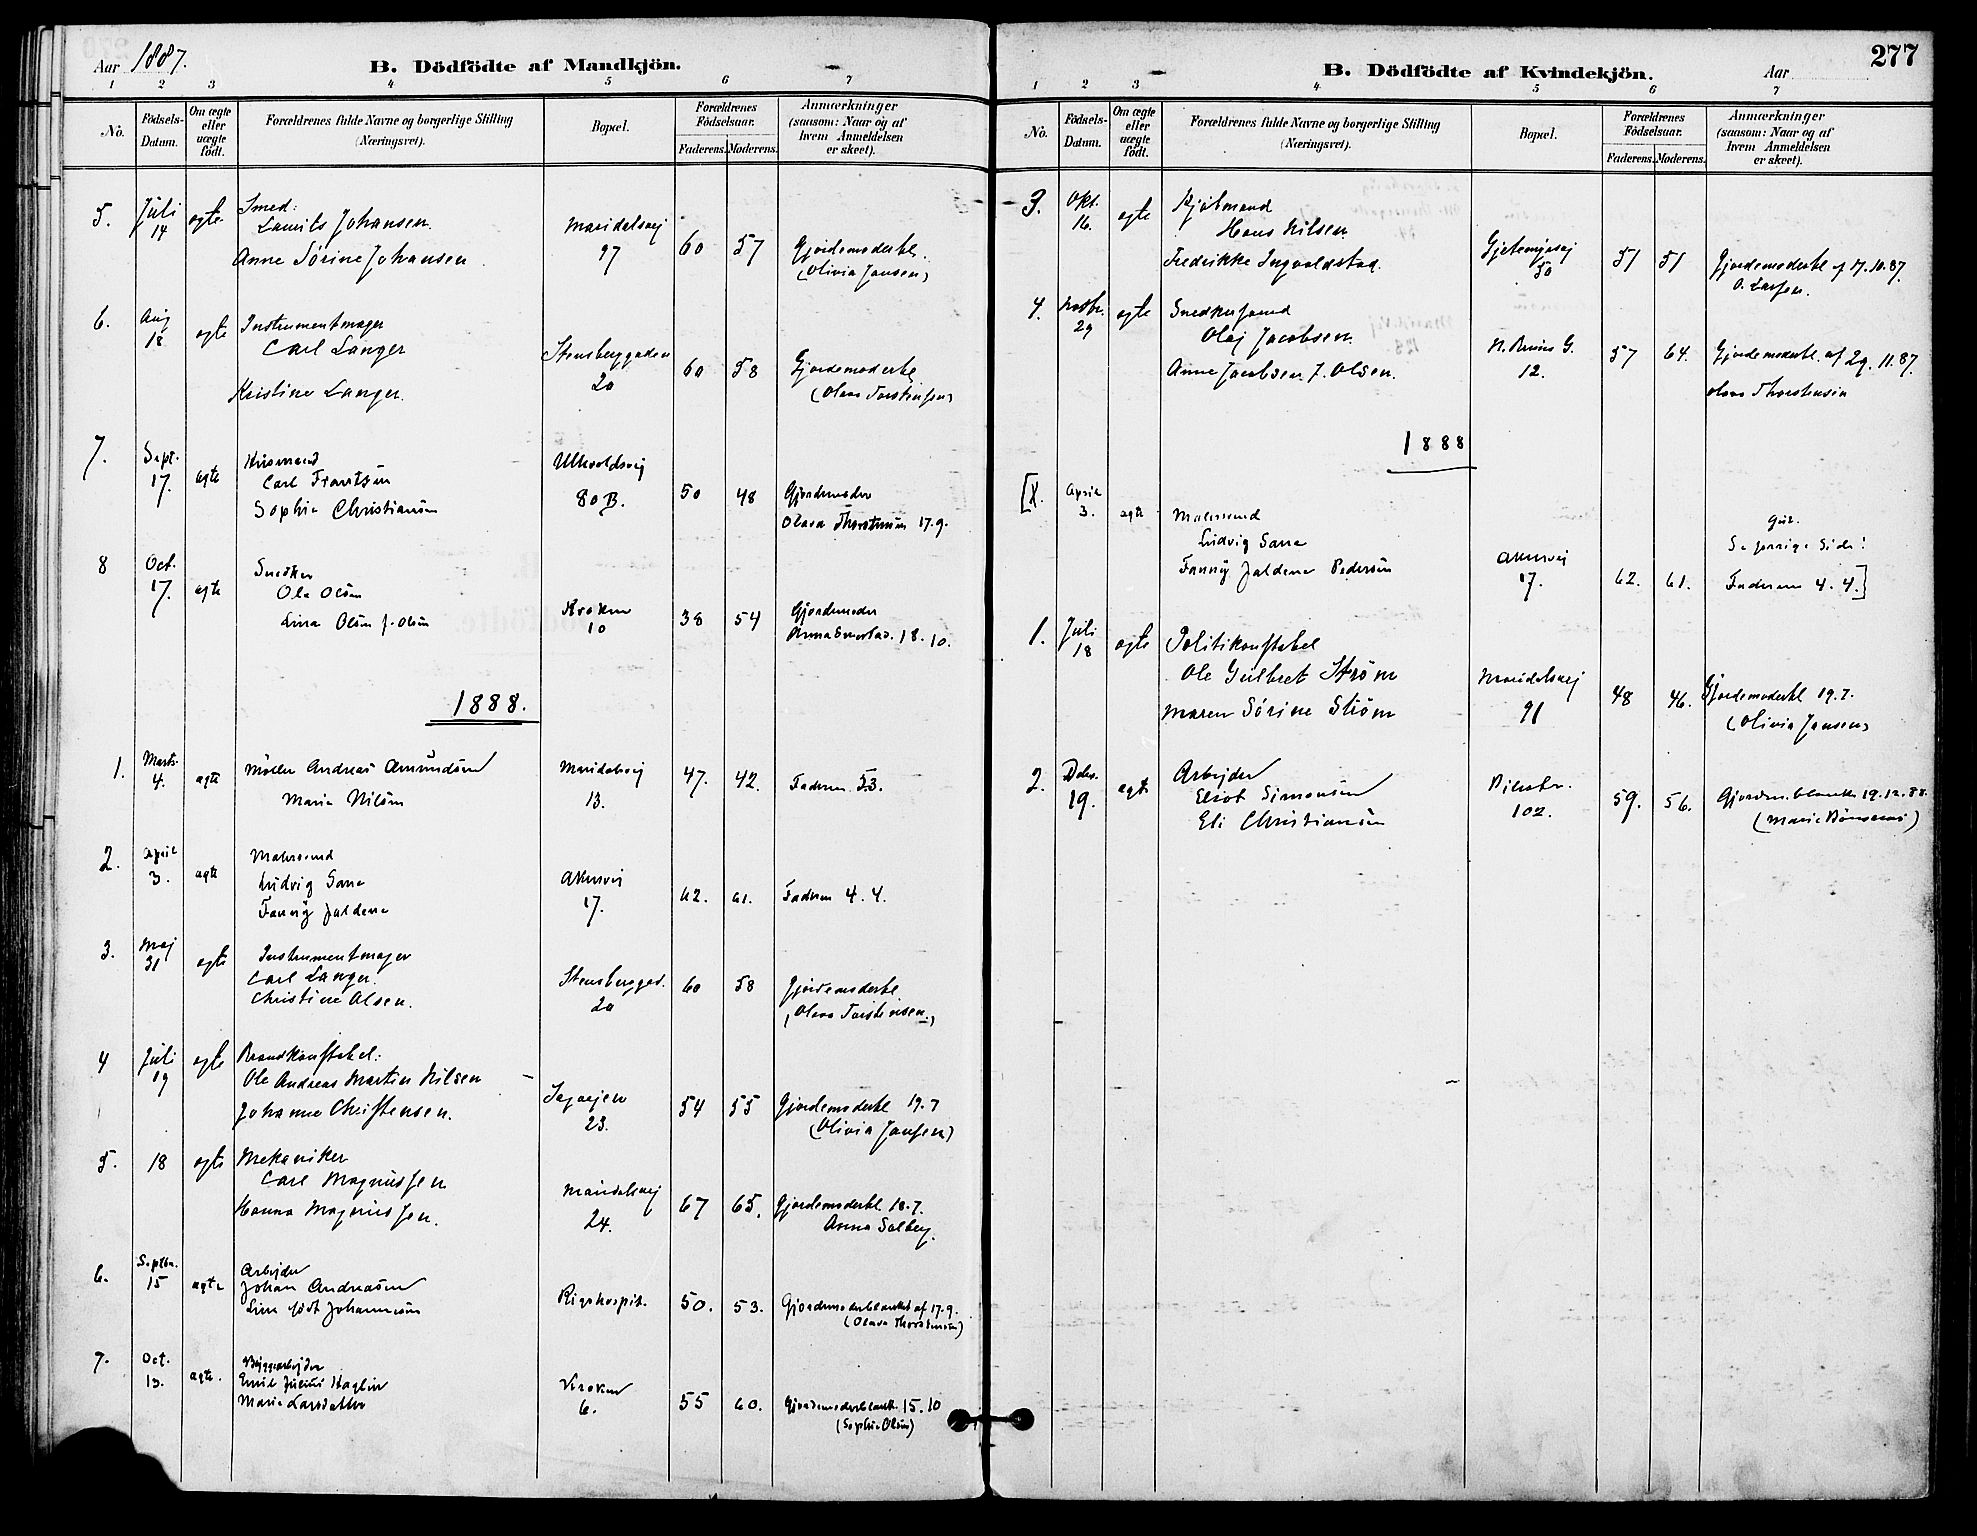 Aar 1887.
B. Dödfödte af Mandkjön.
1 2 3 4 5 6 7
No.
Födsels-Datum.
Om ægte eller uægte födt.
Forældrenes fulde Navne og borgerlige Stilling (Næringsvei).
Bopæl.
Forældrenes Födselsaar.
Faderens. Moderens.
Anmærkninger (saasom: Naar og af hvem Anmeldelsen er skeet).
5. Juli 14 ægte Smed:
Laurits Johansen Maridalsvej
Anne Sørine Johansen 97 60 57 Gjordemoderbl.
(Olivia Jansen)
6. Aug 18 ægte Instrumentmager
Carl Langer Stensberggaden
Kristine Langer. 20 60 58 Gjordemoderbl
(Olava Torstensen)
7. Sept. 17. ægte
Carl Frantsen Ullevoldsvej
Sophie Christiansen 80 B. 50 48 Gjordemoder
Olava Thorstensen 17.9.
8 Oct. 17. ægte Snedker
Ole Olsen
Lina Olsen f. Olsen Kroken 10 38 54 Gjordemoder
18.10.
1888.
1. Marts 4. ægte Møller Andreas Amundsen Maridalsvej
Maria Nilsen 13. 47. 42. Faderen 5.3.
2. April 3. ægte Malersvend
Ludvig Sane Akersvej
Fanny Jaldene 17. 62. 61. Faderen 4.4.
3. Maj 31 ægte Instrumentmager
Carl Langer. Stensbergged.
Christine Olsen. 20 60 58 Gjordemoderbl.
(Olava Torstensen.)
4 Juli 19 ægte Brandkonstabel:
Ole Andreas Martin Nilsen
Johanne Christensen. 23. 54 55 Gjordemoderbl 19.7
(Olivia Jansen)
5. 18 ægte Mekaniker
Carl Magnussen Maridalsvej
Hanna Magnussen. 24. 67 65. Gjordemoderbl 18.7.
Anna Solberg.
6. Septbr. 15 ægte Arbejder
Johan Andreasen
Lina født Johannesen Rigshospit. 50. 53. Gjordemoderblanket af 17.9.
(Olava Thorstensen)
7. Oct. 13. ægte. Byggearbejder
Emil Julius Haglin Kroken
Marie Larsdatter 6. 55 60. Gjordemoderblank. 15.10
(Sophie Olsen)
277
B. Dödfödte af Kvindekjön.
Aar
1 2 3 4 5 6 7
No.
Födsels-Datum.
Om ægte eller uægte födt.
Forældrenes fulde Navne og borgerlige Stilling (Næringsvei).
Bopæl.
Forældrenes Födselsaar.
Faderens. Moderens.
Anmærkninger (saasom: Naar og af hvem Anmeldelsen er skeet).
3. Okt. 16. ægte Kjøbmand
Hans Nilsen.
Fredrikke Ingvaldstad. Gjetemyrsvej 50 51 51 Gjordemoderbl af 17.10.87.
O. Larsen.
4. Novbr. 29 ægte Snedkersvend
Olaf Jacobsen. 12. 57 64. Gjordemoderbl. af 29.11.87.
Anne Jacobsen f. Olsen. Olava Thorstensen
1888
[X. April 3. ægte Malersvend
Ludvig Sane Se forrige Side!
Fanny Jaldene Pedersen Akersvej 17. 62. 61. Faderen 4.4.]
1. Juli 18 ægte Politikonstabel
Ole Gulbret Strøm Maridalsvej
Maren Sørine Strøm 91 48 46. Gjordemoderbl 19.7.
(Olivia Jansen)
2. Debr. 19. ægt. Arbejder
Simonsen 102. 59. 56. Gjordm.blank. 19.12.88.
Eli Christiansen